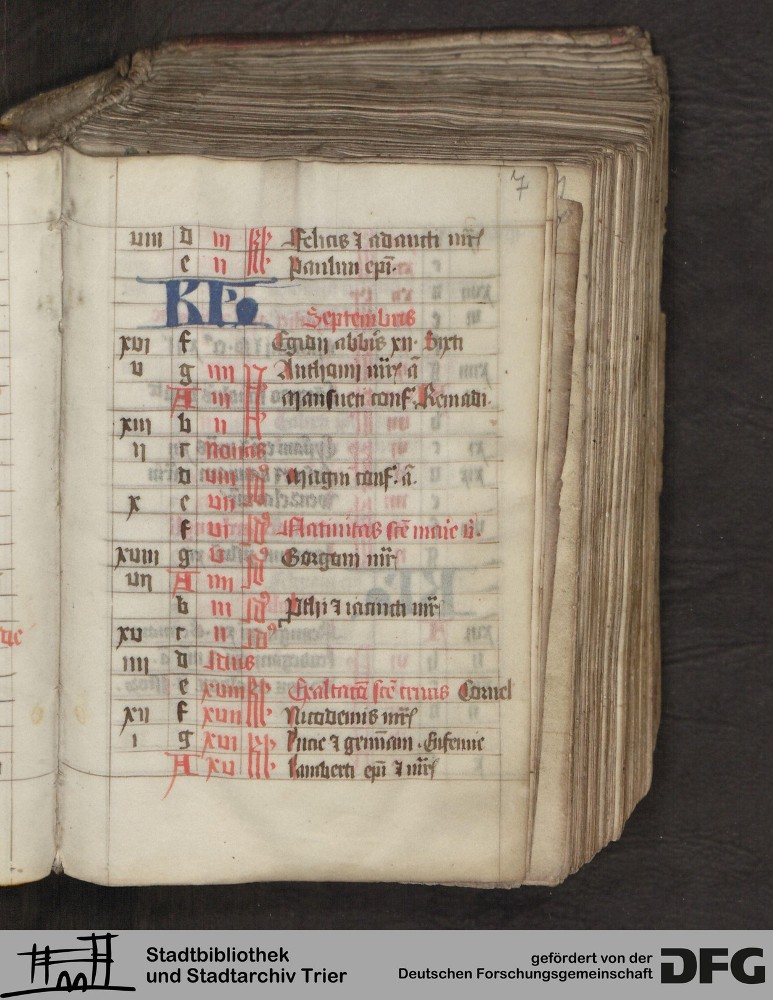 7
viii d iii kl Felicis ⁊ adaucti mr̄
e ii kl paulini ep̄i.
KL
Septembris
xvi f Egidii abbīs xii. Sixti
v g iiii N Anthonii mr̄ ā
A iii mansueti conf. Remacli.
xiii b ii N
ii c nonas
d viii id magni conf. ā.
x e vii id
f vi id Natiuitas scē marie v.
xviii g v id Gorgonii mr̄
vii A iiii id
b iii id Prthi ⁊ iacincti mr̄
xv c ii id
iiii d Idus
e xviii kl Exaltatō scē crucis Cornel
xii f xvii kl Nicodemis mr̄
i g xvi kl lucie ⁊ geminiani. Eufemie
A xv kl lamberti ep̄i ⁊ mr̄
Stadtbibliothek
und Stadtarchiv Trier
gefördert von der
Deutschen Forschungsgemeinschaft DFG